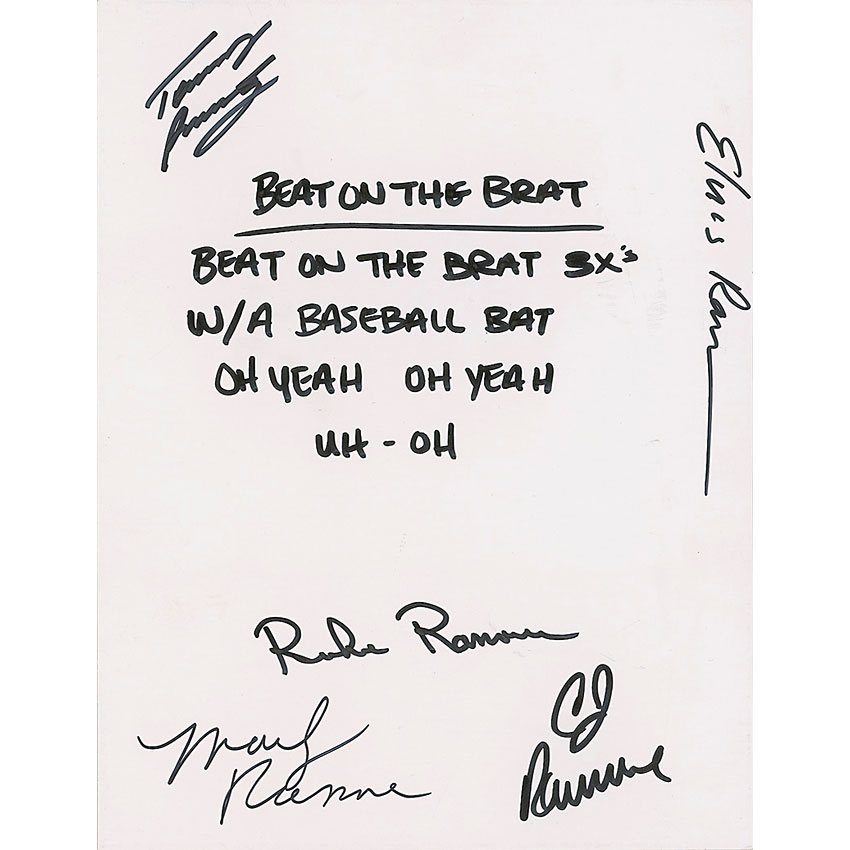 Tommy
Ramone
Elvis Ramone
BEAT ON THE BRAT
BEAT ON THE BRAT 3X's
W/A BASEBALL BAT
OH YEAH OH YEAH
UH - OH
Richie Ramone
Marky
Ramone
CJ
Ramone